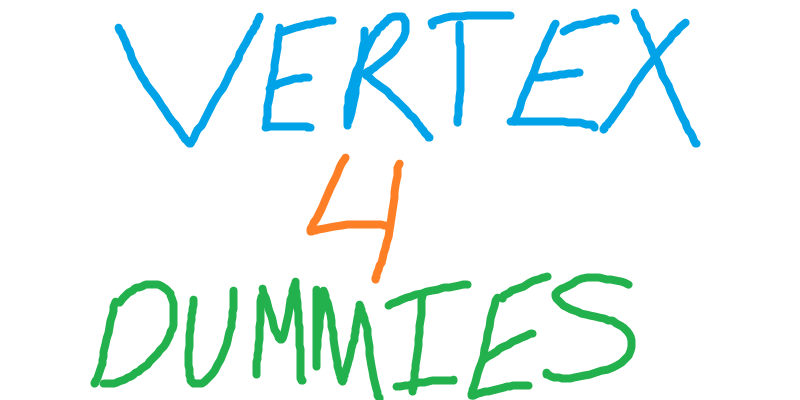 VERTEX
4
DUMMIES